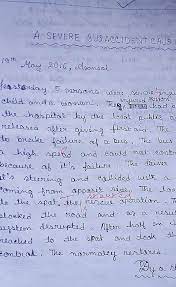 A SEVERE BUS ACCIDENT CAUS
19th May 2016, Asansol:
Yesterday, 5 persons were severe injur
child and a women. The injured had
the hospital by the local public a
released after giving first aid. The
to brake failure of a bus. The bus
a high speed and could not contr
because of it's failure. The driver
it's steering and collided with a
coming from opposit side. The loc
to the spot, they rescue operation. Th
blocked the road and as a resul
system disrupted. After half an
reached to the spot and took th
control. The normalcy restores.
By a St